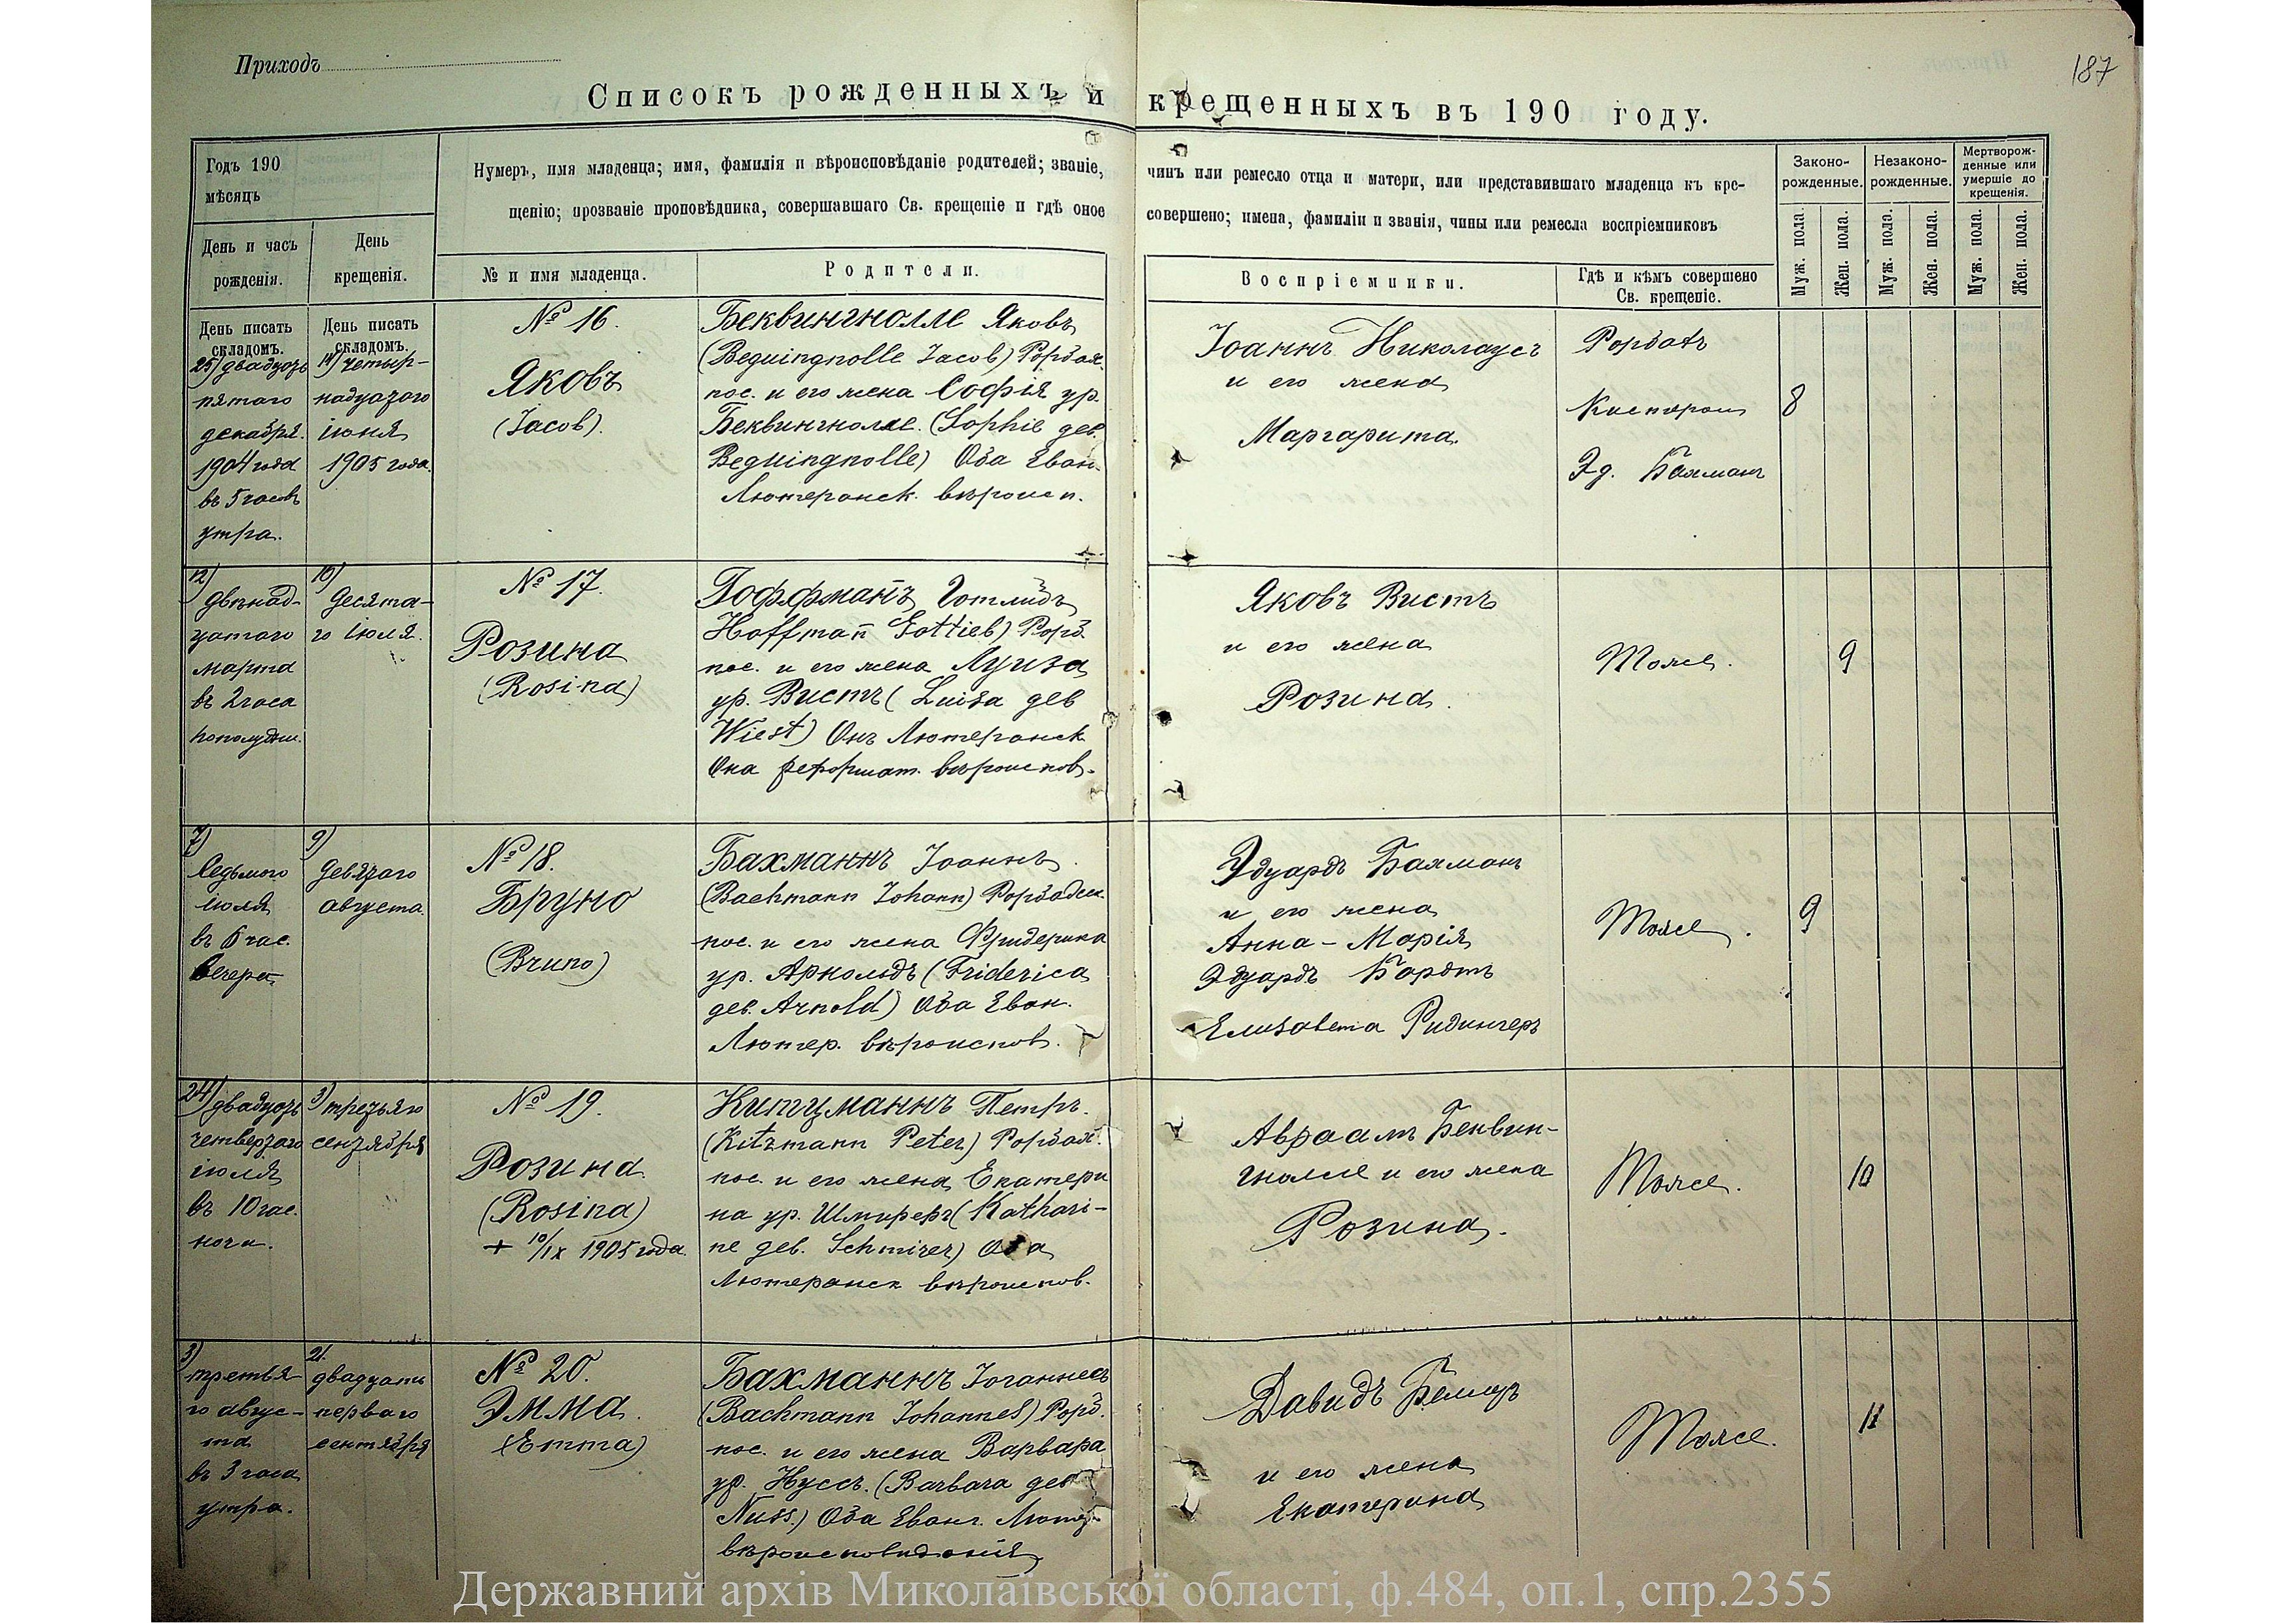 Приходъ
187
Списокъ рожденныхъ и крещенныхъ въ 190 году.
Годъ 190
мѣсяцъ
День и часъ
рожденія.
День
крещенія.
Нумеръ, имя младенца; имя, фамилія и вѣроисповѣданіе родителей; званіе, чинъ или ремесло отца и матери, или представившаго младенца къ кре-
щенію; прозваніе проповѣдника, совершавшаго Св. крещеніе и гдѣ оное совершено; имена, фамиліи и званія, чины или ремесла воспріемниковъ
№ и имя младенца.
Родители.
Воспріемники.
Гдѣ и кѣмъ совершено
Св. крещеніе.
Законо-
рожденные.
Незаконо-
рожденные.
Мертворож-
денные или
умершіе до
крещенія.
Муж. пола.
Жен. пола.
Муж. пола.
Жен. пола.
Муж. пола.
Жен. пола.
День писать
складомъ.
25) двадцать
пятаго
декабря
1904 года
въ 5 часовъ
утра.
День писать
складомъ.
14) четыр-
надцатаго
іюня
1905 года
№ 16.
Яковъ
(Jacob).
Беквингнолле Яковъ
(Bequingnolle Jacob) Рорбах.
пос. и его жена Софія ур.
Беквингнолле. (Sophie geb.
Bequingnolle) Оба Еван.
Лютеранск. вѣроисп.
Іоаннъ Николаусъ
и его жена
Маргарита.
Рорбахъ
Кистеромъ
Эд. Бахманъ
8
12)
двѣнад-
цатаго
марта
въ 2 часа
пополудни.
10)
десята-
го Іюля.
№ 17.
Розина
(Rosina)
Гоффманъ Готлибъ
Hoffman̄ Gottlieb) Рорб.
пос. и его жена Луиза
ур. Вистъ (Luisa geb
Wiest) Онъ Лютеранск
Она реформат. вѣроиспов.
Яковъ Вистъ
и его жена
Розина.
Тоже.
9
7)
Седьмого
іюля
въ 6 час.
вечера
9)
девятаго
августа
№ 18.
Бруно
(Bruno)
Бахманнъ Іоаннъ
(Bachmann Johann) Рорбахск.
пос. и его жена Фридерика
ур. Арнольдъ (Friderica
geb. Arnold) Оба Еван.
Лютер. вѣроиспов.
Эдуардъ Бахманъ
и его жена
Анна-Марія
Эдуардъ Бартъ
Елизавета Ридингеръ
Тоже.
9
24) двадцать
четвертаго
іюля
въ 10 час.
ночи.
3) третьяго
сентября
№ 19.
Розина
(Rosina)
+ 10/IX 1905 года.
Китцманнъ Петръ.
(Kitzmann Peter) Рорбах.
пос. и его жена Екатери
на ур. Шмиреръ (Kathari-
ne geb. Schmirer) Оба
Лютеранск вѣроиспов.
Авраамъ Беквин-
гнолле и его жена
Розина.
Тоже.
10
3)
третья-
го авгус-
та
въ 3 часа
утра.
21.
двадцать
перваго
сентября
№ 20.
Эмма.
(Emma)
Бахманнъ Іоганнесъ
(Bachmann Johannes) Рорб.
пос. и его жена Варвара
ур. Нуссъ. (Barbara geb
Nuss.) Оба Еванг. Лютер.
вѣроисповѣданія
Давидъ
и его жена
Екатерина
Тоже.
11
Державний архів Миколаївської області, ф.484, оп.1, спр.2355